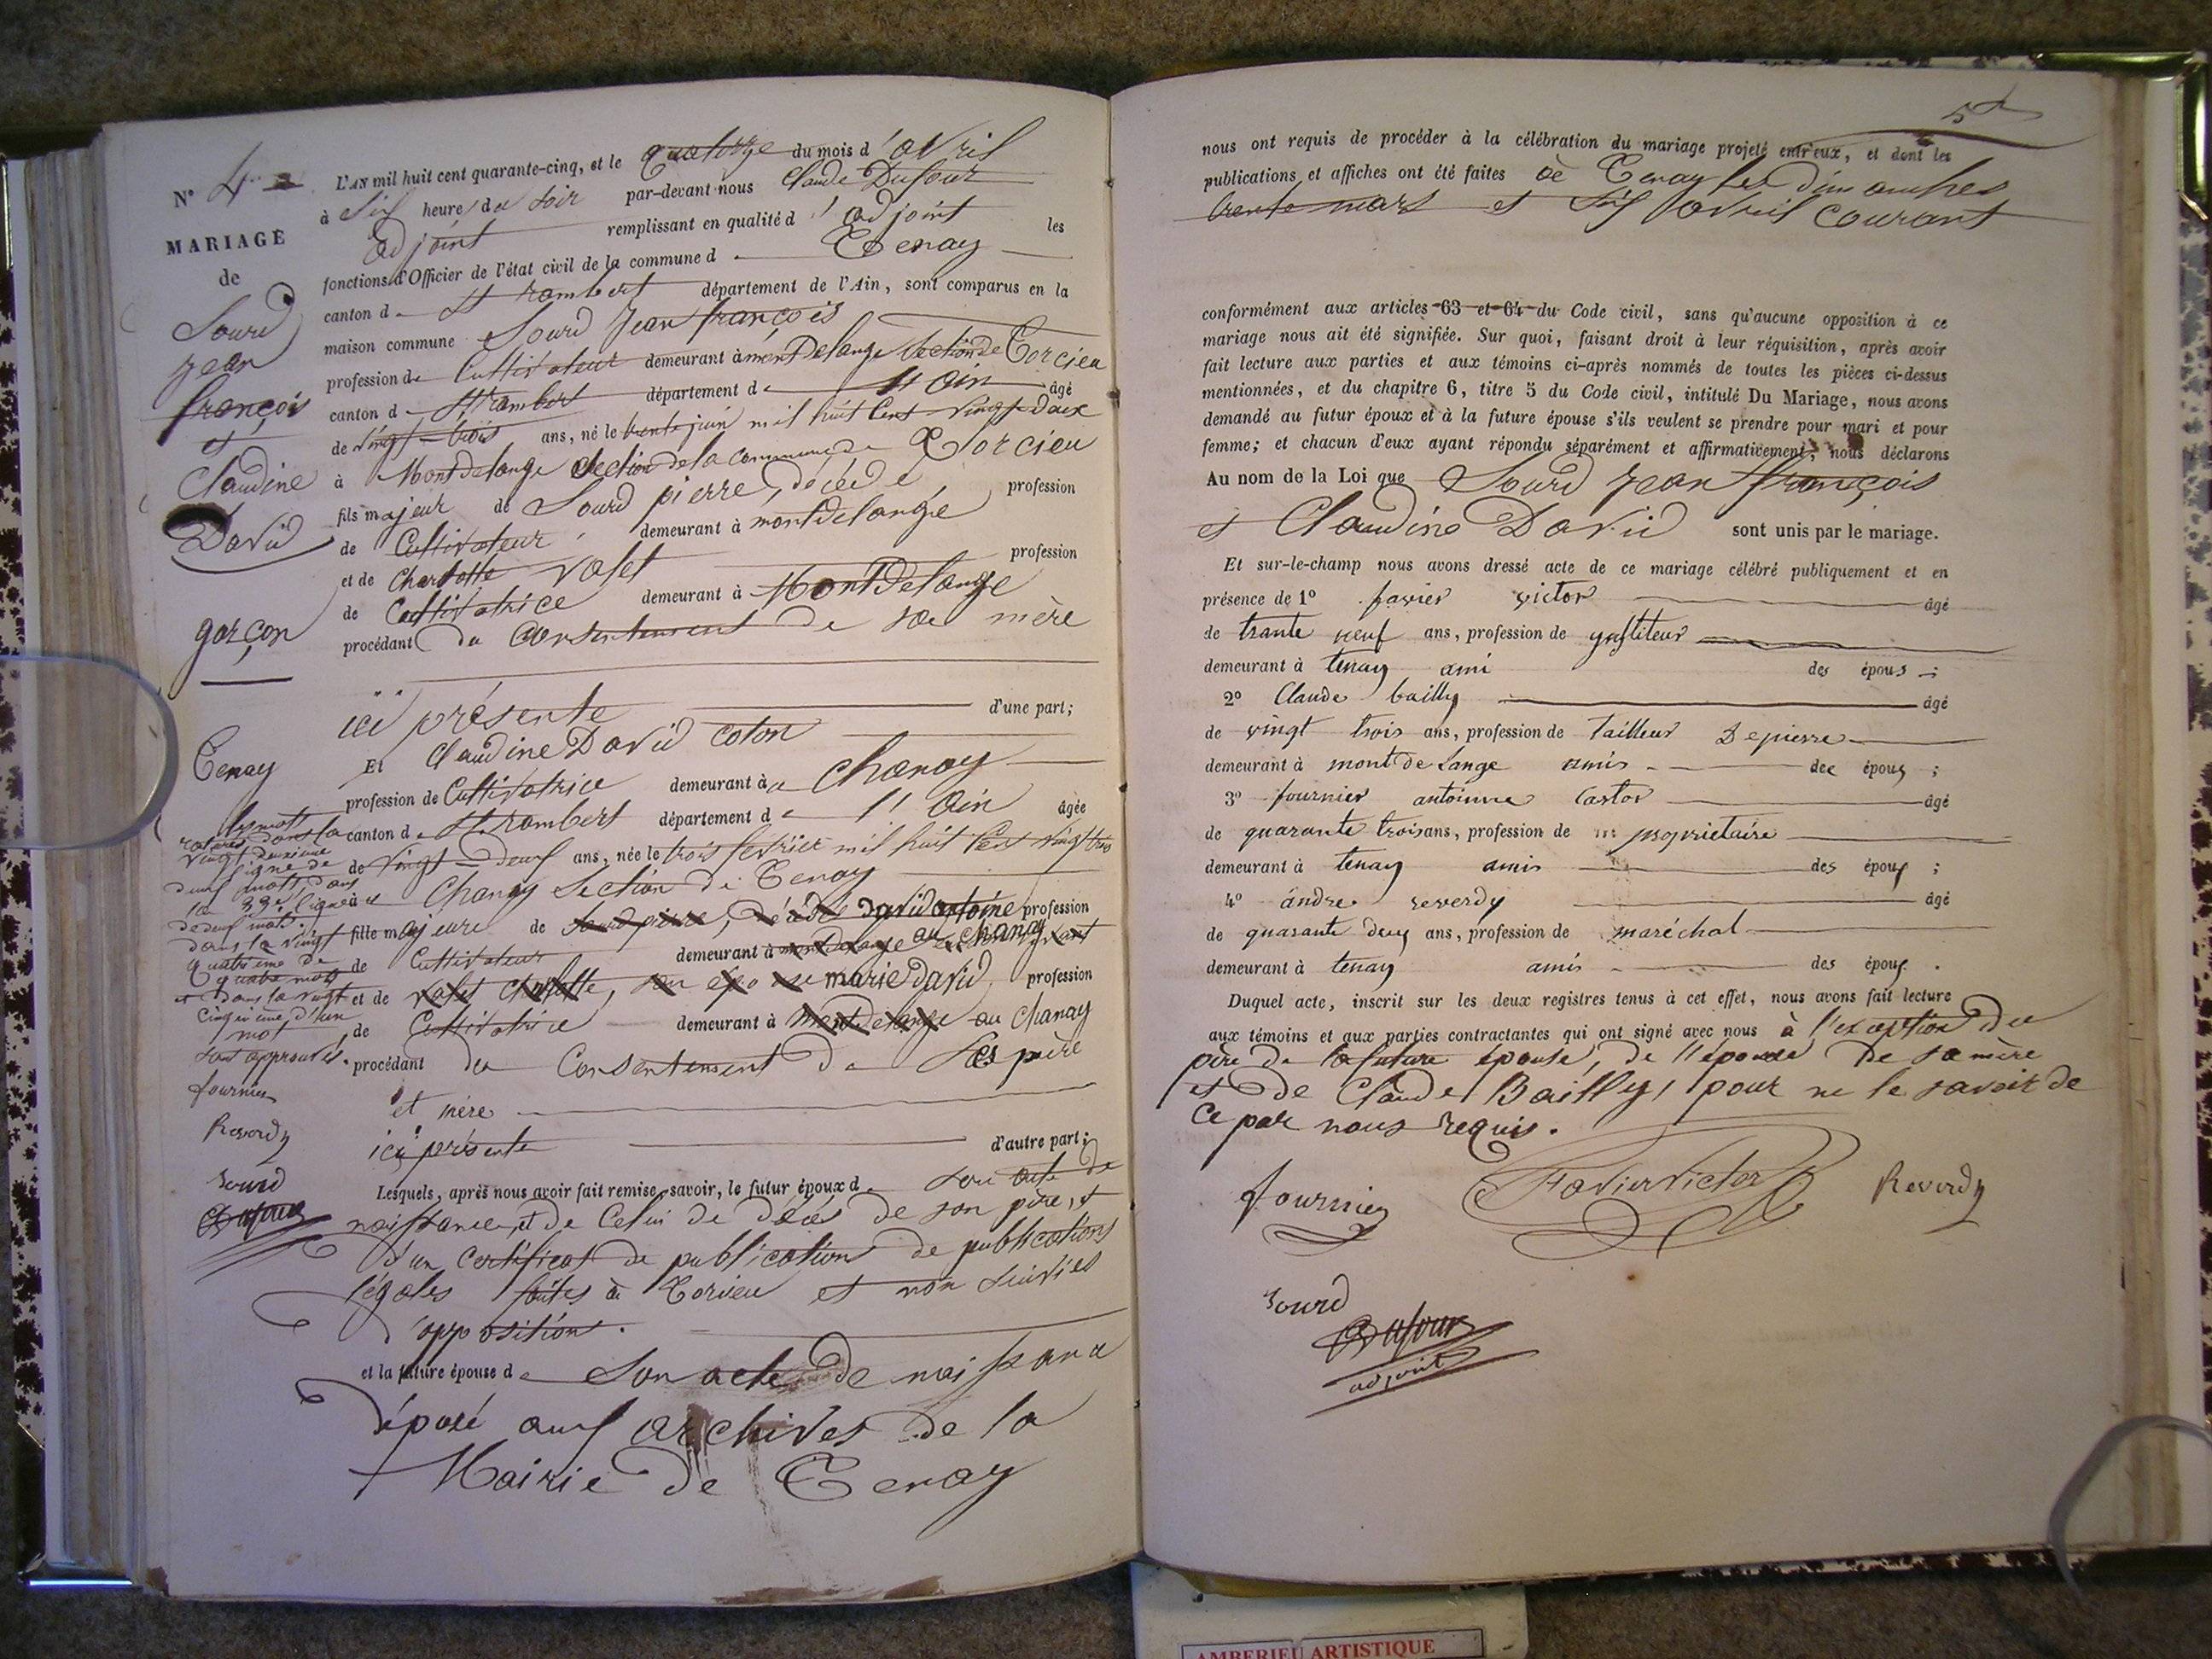 N° 4
MARIAGE
de
Sourd
Jean
françois
et
Claudine
David
garçon
Tenay
les mots
rayés dans la
vingt deuxième
ligne de
deux mots dans
la 23e ligne
de deux mots
dans la vingt
quatrième de
quatre mots
et dans la vingt
cinquième d'un
mot
sont approuvés.
fournier
Reverdy
sourd
Dufour
L'AN mil huit cent quarante-cinq, et le quatorze du mois d'avril
à six heures du soir par-devant nous Claude Dufour
adjoint remplissant en qualité d'adjoint les
fonctions d'Officier de l'état civil de la commune de Tenay
canton de St rambert département de l'Ain, sont comparus en la
maison commune Sourd Jean françois
profession de Cultivateur demeurant à montDelange Section de Torcieu
canton de St rambert département de l'ain âgé
de vingt-trois ans, né le trente juin mil huit cent vingt-deux
à MontDelange Section de la commune de Torcieu
fils majeur de Sourd pierre, décédé, profession
de Cultivateur, demeurant à montdelange
et de Charlotte profession
de Cultivatrice demeurant à MontDelange
procédant du Consentement de sa mère
ici présente d'une part;
Et Claudine David coton
profession de Cultivatrice demeurant à Chanay
canton de St. rambert département de l'ain âgée
de vingt-deux ans, née le trois février mil huit cent vingt trois
à Chanay Section de Tenay
fille majeure de Sourd pierre, décédé David antoine profession
de Cultivateur demeurant à montDelange au chanay
et de Charlotte, marie David, profession
de Cultivatrice demeurant à MontDelange au Chanay
procédant du Consentement de Ses père
et mère
ici présente d'autre part;
Lesquels, après nous avoir fait remise, savoir, le futur époux de son acte de
naissance, et de Celui de décès de son père, et
d'un Certificat de publication de publications
légales faites à Torcieu et non suivies
d'opposition.
et la future épouse de Son acte de naissance
déposé aux archives de la
Mairie de Tenay
nous ont requis de procéder à la célébration du mariage projeté entr'eux, et dont les
publications et affiches ont été faites à Tenay les dimanches
trente mars et six avril courant
conformément aux articles 63 et 64 du Code civil, sans qu'aucune opposition à ce
mariage nous ait été signifiée. Sur quoi, faisant droit à leur réquisition, après avoir
fait lecture aux parties et aux témoins ci-après nommés de toutes les pièces ci-dessus
mentionnées, et du chapitre 6, titre 5 du Code civil, intitulé Du Mariage, nous avons
demandé au futur époux et à la future épouse s'ils veulent se prendre pour mari et pour
femme; et chacun d'eux ayant répondu séparément et affirmativement, nous déclarons
Au nom de la Loi que Sourd Jean françois
et Claudine David sont unis par le mariage.
Et sur-le-champ nous avons dressé acte de ce mariage célébré publiquement et en
présence de 1° favier victor âgé
de trante neuf ans, profession de
demeurant à tenay ami des épous;
2° Claude bailly âgé
de vingt trois ans, profession de tailleur Depierre
demeurant à mont de Lange amis des époux;
3° fournier antoinne Castor âgé
de quarante trois ans, profession de propriétaire
demeurant à tenay amis des époux;
4° andre reverdy âgé
de quarante deux ans, profession de maréchal
demeurant à tenay amis des époux.
Duquel acte, inscrit sur les deux registres tenus à cet effet, nous avons fait lecture
aux témoins et aux parties contractantes qui ont signé avec nous à l'exception du
père de la future épouse, de l'épouse de sa mère
et de Claude Bailly, pour ne le savoir de
ce par nous requis.
fournier FavierVictor Reverdy
sourd
Dufour
adjoint
AMBERIEU ARTISTIQUE